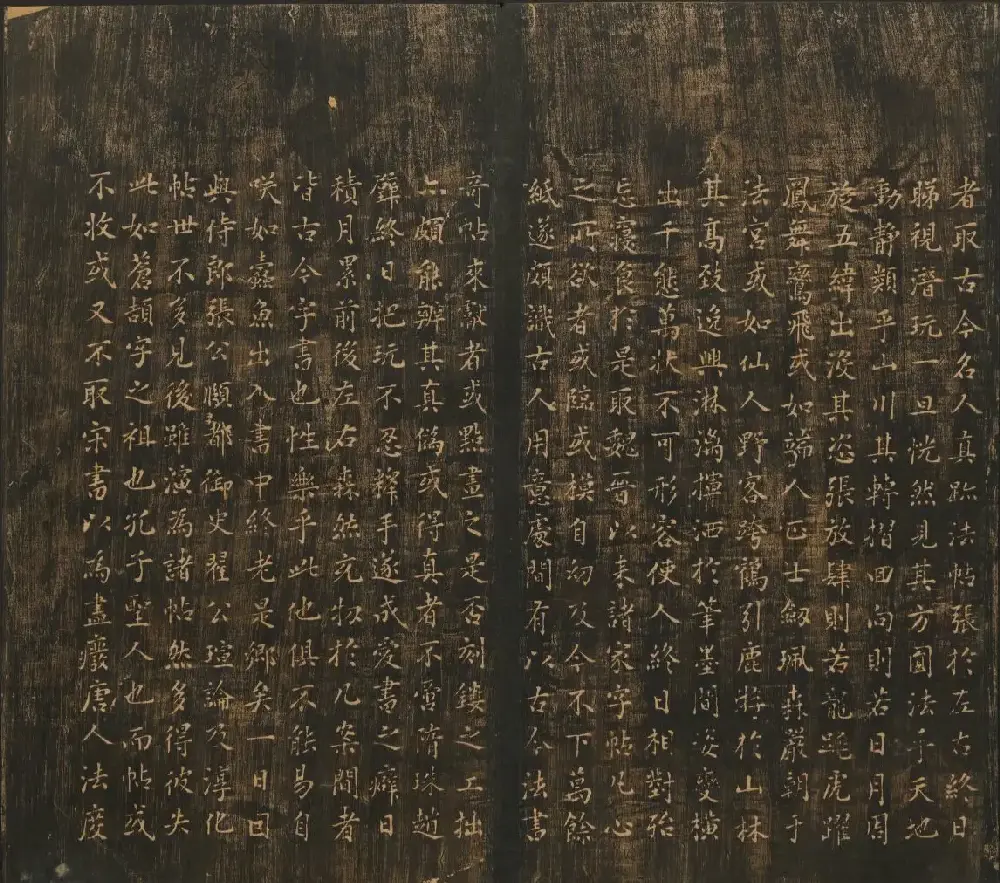 者取古今名人真跡法帖張於左右終日
睇視潛玩一旦恍然見其方圓法乎天地
動靜類乎山川其轉摺回向則若日月周
旋五緯出沒其恣張放肆則若龍跳虎躍
鳳舞鸞飛或如端人正士劒珮森嚴朝于
法宮或如仙人野客跨鶴引鹿於山林
其高致逸興淋漓揮洒於筆墨間姿變橫
出千態萬狀不可形容使人終日相對殆
忘寢食於是取魏晋以来諸家字帖凡心
之所欲者或臨或摸自幼及今不下萬餘
紙遂頗識古人用意處間有以古今法書
奇帖來獻者或點畫之是否刻鏤之工拙
亦頗能辨其真僞或得真者不啻隋珠趙
璧終日把玩不忍釋手遂成愛書之癖日
積月累前後左右森然充牣於几案間者
皆古今字書也性樂乎此他俱不能易自
咲如蠹魚出入書中終老是鄉矣一日因
與侍郎張公頤都御史翟公瑄論及淳化
帖世不多見後雖演為諸帖然多得彼失
此如蒼頡字之祖也孔子聖人也而帖或
不收或又不取宋書以為盡廢唐人法度